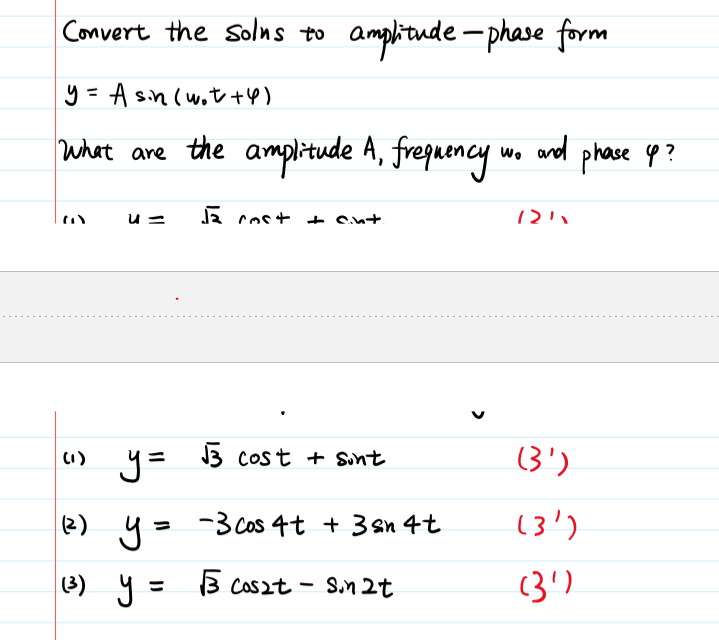 Convert the solns to amplitude-phase form
y = A sin(w₀t+φ)
What are the amplitude A, frequency w₀ and phase φ?
(1) y = √3 cost + sint (3')
(1) y = √3 cost + sint (3')
(2) y = -3cos4t + 3sin4t (3')
(3) y = √3 cos2t - sin2t (3')